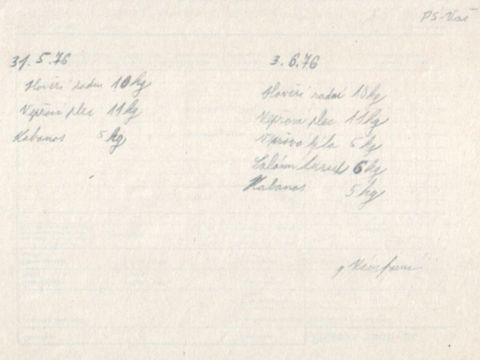 PS-Vaš
31.5.76
Hovězí zadní 10 kg
Vepřová plec 11 kg
Kabanos 5 kg
3.6.76
Hovězí zadní 18 kg
Vepřová plec 11 kg
Vepřová kýta 5 kg
Salám 6 kg
Kabanos 5 kg